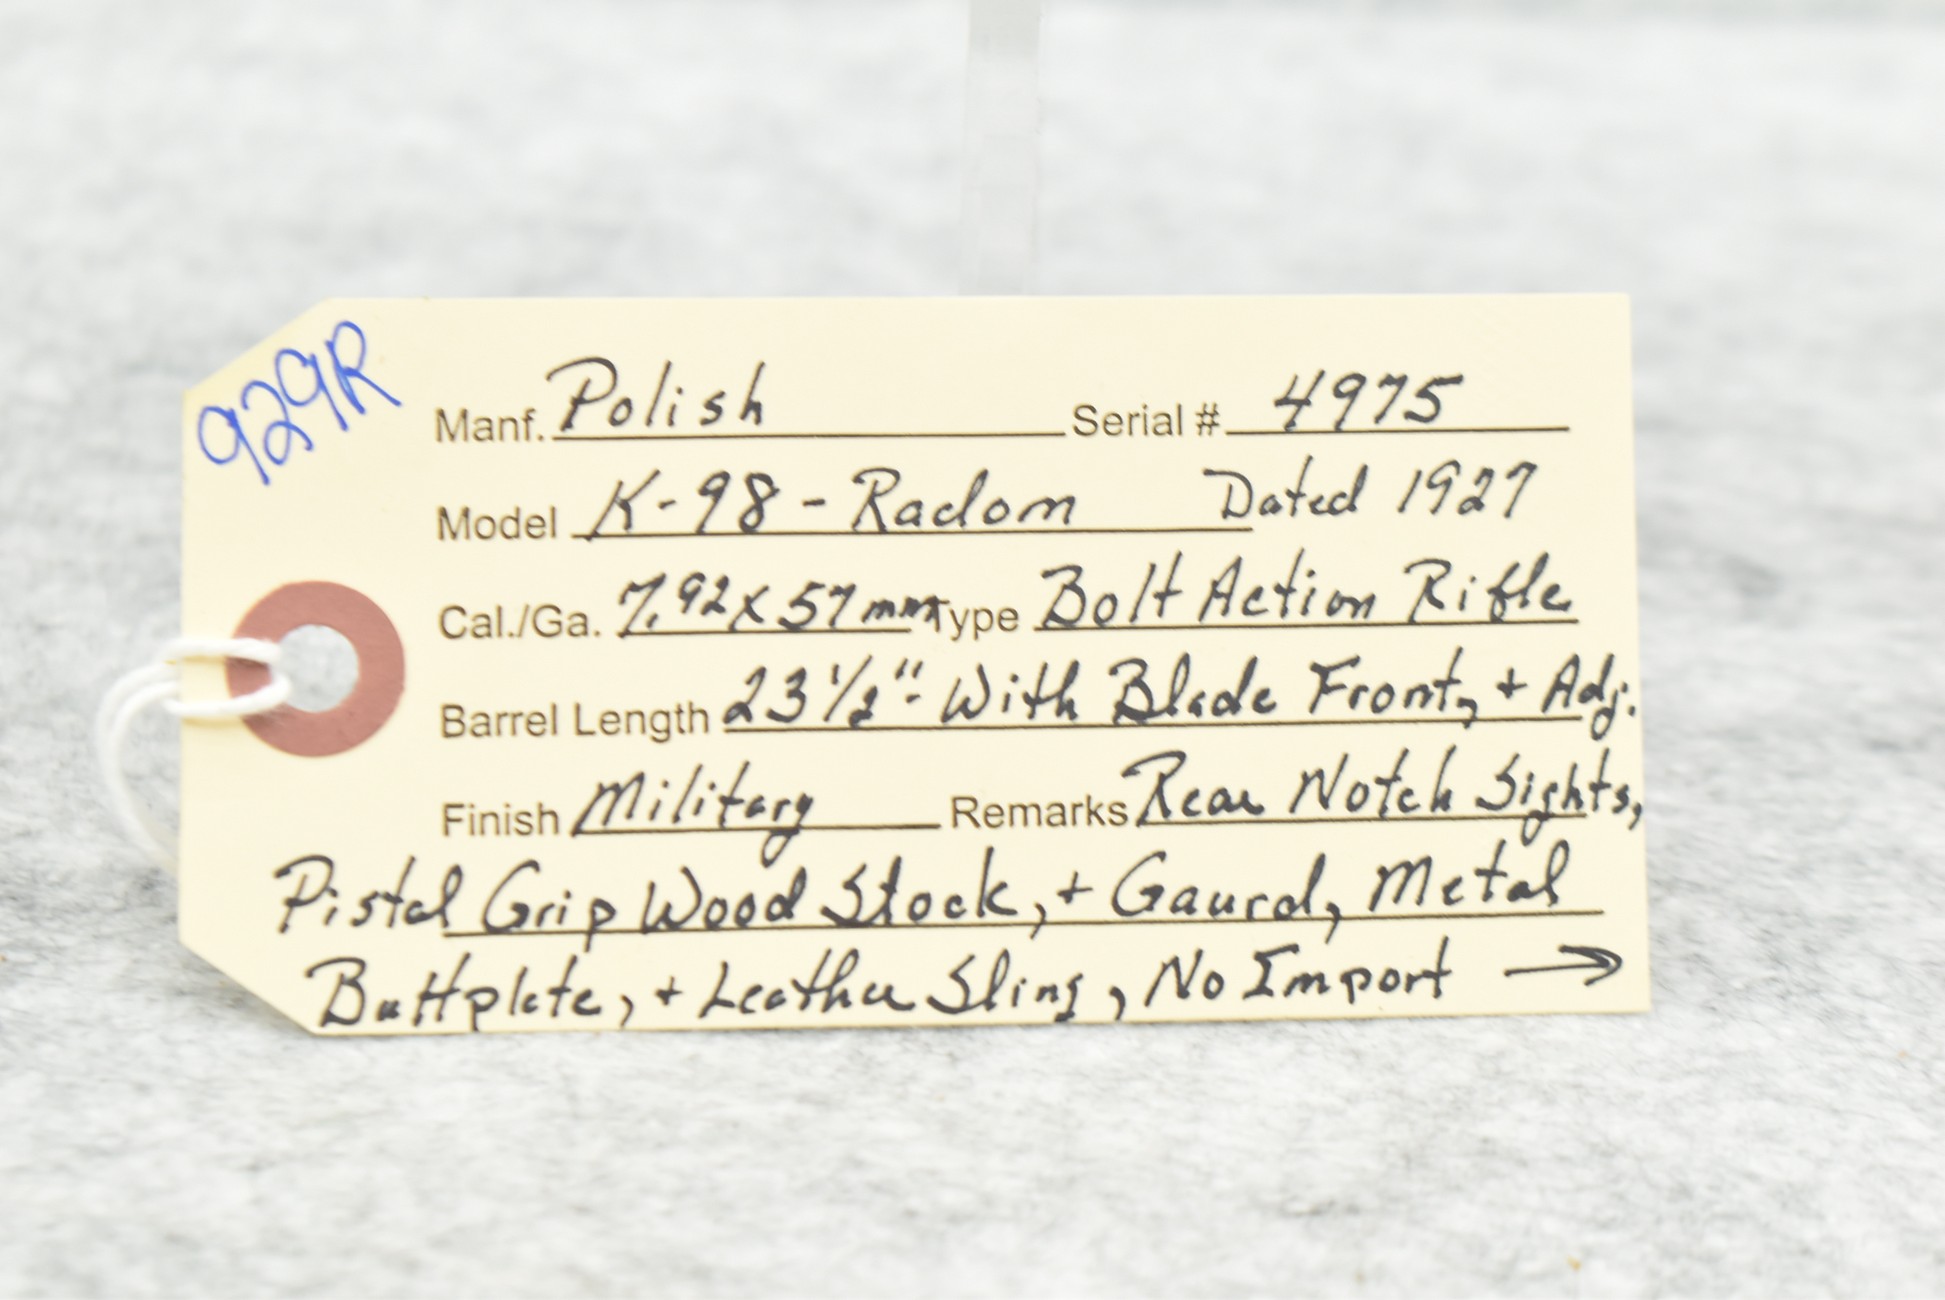 929R
Manf. Polish Serial # 4975
Model K-98 - Radom Dated 1927
Cal./Ga. 7.92 x 57 mm Type Bolt Action Rifle
Barrel Length 23 1/2" - With Blade Front, + Adj.
Finish Military Remarks Rear Notch Sights,
Pistol Grip Wood Stock, + Gaurd, Metal
Buttplate, + Leather Sling, No Import →